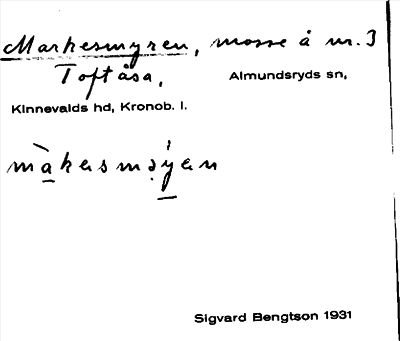 Markesmyren, mosse å nr. 3
Toftåsa, Almundsryds sn,
Kinnevalds hd, Kronob. l.
màkasmǝ̣́yan
Sigvard Bengtson 1931